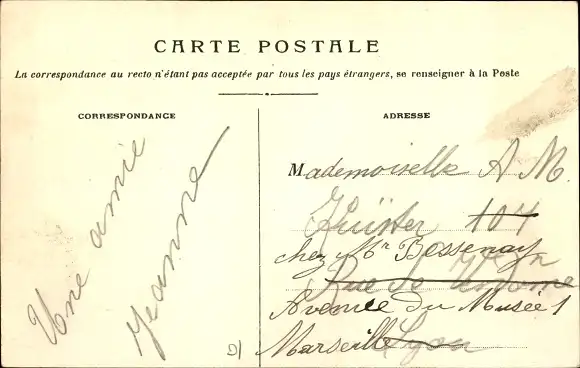 CARTE POSTALE
La correspondance au recto n'étant pas acceptée par tous les pays étrangers, se renseigner à la Poste
CORRESPONDANCE
Une amie
Jeanne
ADRESSE
Mademoiselle A M.
107
chez Mr Bossenay
Rue Vendome
Avenue du Musée 1
Marseille Lyon